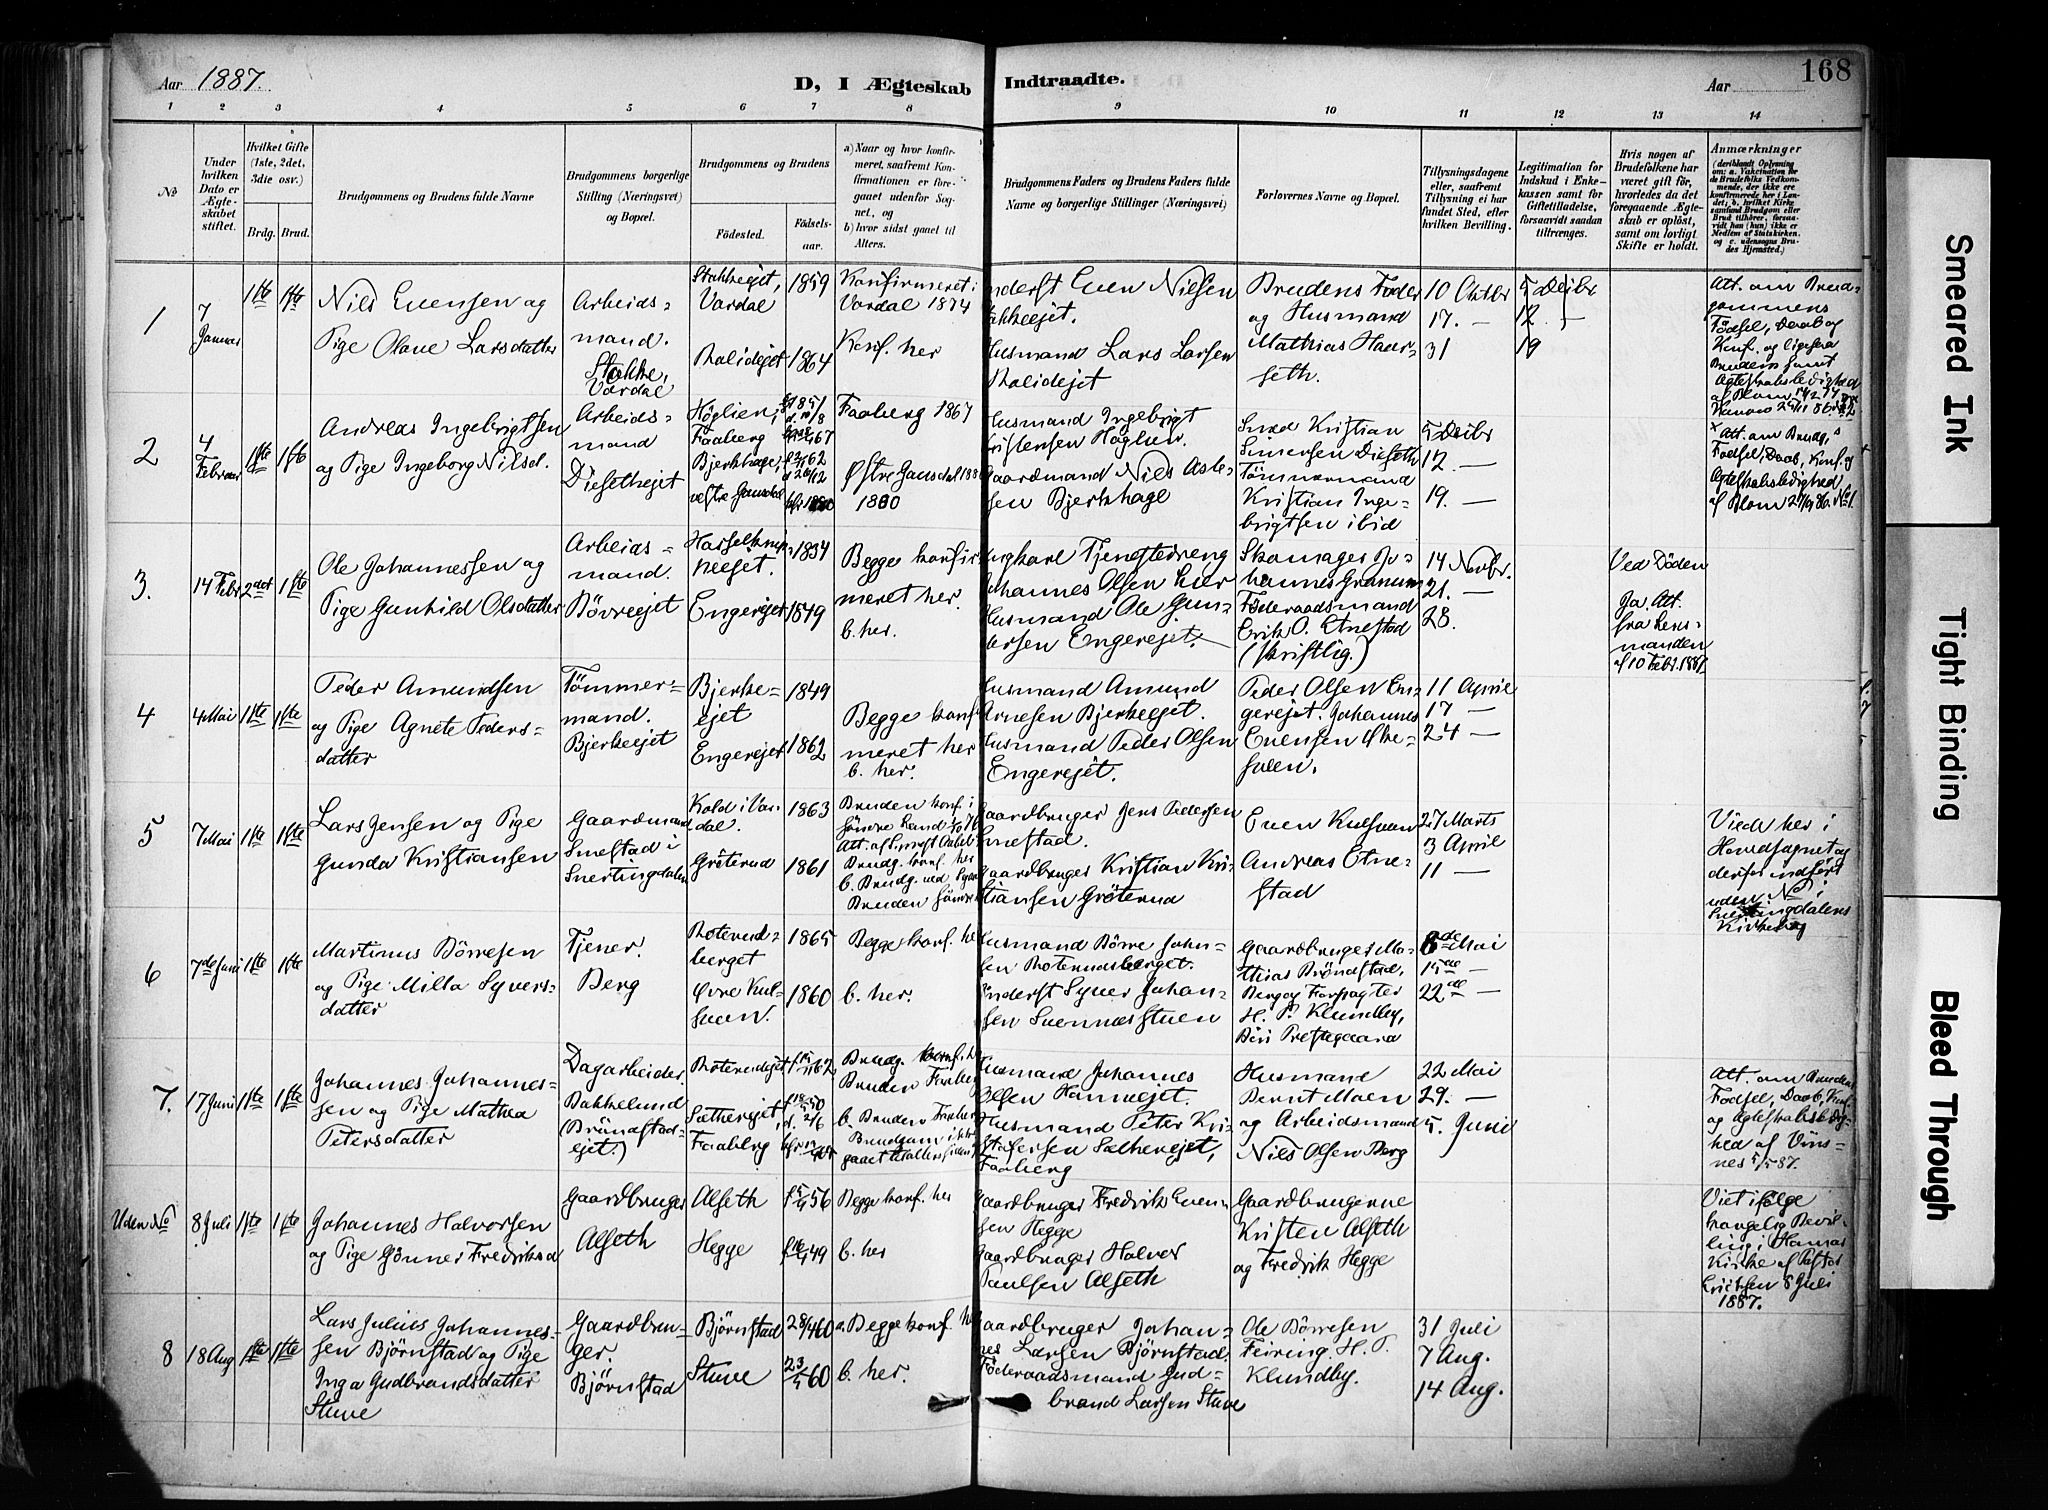 Aar 1887.
D, I Ægteskab Indtraadte.
Aar
168
1 2 3 4 5 6 7 8 9 10 11 12 13 14
No
Under hvilken Dato er Ægteskabet stiftet.
Hvilket Gifte (1ste, 2det, 3die osv.)
Brdg. Brud.
Brudgommens og Brudens fulde Navne
Brudgommens borgerlige Stilling (Næringsvei) og Bopæl.
Brudgommens og Brudens
Fødested.
Fødselsaar.
a) Naar og hvor konfirmeret, saafremt Konfirmationen er foregaaet udenfor Sognet, og
b) hvor sidst gaaet til Alters.
Brudgommens Faders og Brudens Faders fulde Navne og borgerlige Stillinger (Næringsvei)
Forlovernes Navne og Bopæl.
Tillysningsdagene eller, saafremt Tillysning ei har fundet Sted, efter hvilken Bevilling.
Legitimation for Indskud i Enkekassen samt for Giftetilladelse, forsaavidt saadan tiltrænges.
Hvis nogen af Brudefolkene har været gift før, hvorledes da det foregaaende Ægteskab er opløst, samt om lovligt Skifte er holdt.
Anmærkninger
1
7
Januar
1ste 1ste
Nils Evensen og
Pige Olave Larsdatter
Arbeids=
mand.
Stokke,
Vardal
Stokkeejet,
Vardal
Kalidejet
1859
1864
Konfirmeret i
Vardal 1874
Konf. her
Inderst Even Nielsen
Stokkeejet.
Husmand Lars Larsen
Brudens Fader
og Husmand
Mathias Haer=
seth.
10 Oktbr
17. —
31
5 Deibr
12 —
19
Att. om Brud=
gommens
Födsel, Daab og
Konf. og ligesaa
Brudens samt
Ægteskabsledighed
2
4
Februar
1ste 1ste
Andreas Ingebrigtsen
og Pige Ingeborg Nilsd.
Arbeids=
mand
Diesethejet
Höglien,
Faaberg
Bjerkhage,
vestre Gausdal
Faaberg 1867
Østre Gausdal
1880
Husmand Ingebrigt
Kristensen Höglien.
Gaardmand Nils Asle=
sen Bjerkhage
Smed Kristian
Simensen Dieseth
Tömmermand
Kristian Inge=
brigtsen ibid
5 Deibr
12. —
19. —
Att. om Brudg.s
Födsel, Daab, Konf. og
Ægteskabsledighed
3.
14 Febr 2det 1ste
Ole Johannessen og
Pige Gunhild Olsdatter
Arbeids=
mand.
Bövreejet
Engerejet
1834
1849
Begge konfir
meret her.
b. her.
Ungkarl Tjenestedreng
Johannes Olsen her
Husmand Ole Gun=
dersen Engerejet.
Skomager Jo=
hannes Granum
Föderaadsmand
Erik O. Etnestad
(skriftlig.)
14 Novbr.
21. —
28.
Ved Döden
Ja. Att.
fra Lens=
manden
af 10 Febr. 1887.
4
4 Mai 1ste 1ste
Peder Amundsen
og Pige Agnete Peders=
datter
Tömmer=
mand.
Bjerkeejet
Bjerke=
ejet
Engerejet
1849
1862
Begge konf
meret her
b. her.
Husmand Amund
Arnesen Bjerkeejet.
Husmand Peder Olsen
Engerejet.
Peder Olsen En=
gerejet. Johannes
Evensen Østre=
11 April
17 —
24 —
5
7 Mai 1ste 1ste
Lars Jensen og Pige
Gunda Kristiansen
Gaardmand
Smestad i
Snertingdalen
Kold i Var=
dal.
Gröterud
1863
1861
Bruden konf. i
söndre Land
Brudg. konf. her
Gaardbruger Jens Pedersen
Smestad.
Gaardbruger Kristian Kri=
stiansen Gröterud
Even Kulsveen
Andreas Etne=
stad
27 Marts
3 April
11 —
Viede her i
Hovedsognet og
derfor indfört
uden No i
Snertingdalens
Kirkebog
6
7de Juni 1ste 1ste
Martinus Börresen
og Pige Milla Syvers=
datter
Tjener.
Berg
Roterud=
berget
Øvre Kul=
sveen.
1865
1860
Begge konf. he
b. her.
Husmand Börre Johan=
sen Roterudsberget.
Inderst Syver Johan=
sen Svennæsstuen
Gaardbruger Ma=
thias Bröndstad,
Berg og Forpagter
H. P. Klundby,
Biri Prestegaard
8de Mai
15de —
22de —
7.
17 Juni 1ste 1ste
Johannes Johannes=
sen og Pige Mathea
Petersdatter
Dagarbeider.
Bakkelund
(Bröndstad=
ejet.)
Roterudejet
Sætherejet,
Faaberg
Brudg. konf. h
Bruden Faaberg
b. Bruden Faaberg
Husmand Johannes
Olsen Hannejet.
Husmand Peter Kri=
stofersen Sætherejet,
Faaberg
Husmand
Bernt Moen
og Arbeidsmand
Nils Olsen Berg
22 Mai
29. —
5. Juni
Att. om Brudens
Födsel, Daab, Konf.
og Ægteskabsledig=
hed af Vins=
nes 5/5 87.
Uden No
8 Juli 1ste 1ste
Johannes Halvorsen
og Pige Gönner Fredriksd
Gaardbruger
Alseth
Alseth
Hegge
Begge konf. her
b. her
Gaardbruger Fredrik Even=
sen Hegge
Gaardbruger Halvor
Paulsen Alseth
Gaardbrugerne
Kristen Alseth
og Fredrik Hegge
Viet ifölge
kongelig Bevil=
ling i Hamar
Kirke af Pastor
Erichsen 8 Juli
1887.
8
18 Aug 1ste 1ste
Lars Julius Johannes=
sen Björnstad og Pige
Inga Gudbrandsdatter
Stuve
Gaardbru=
ger.
Björnstad
Björnstad
Stuve
28/4 60
23/5 60
a. Begge konf. he
b. her.
Gaardbruger Johan=
nes Larsen Björnstad.
Föderaadsmand Gud=
brand Larsen Stuve
Ole Börresen
Feiring. H. P.
Klundby.
31 Juli
7 Aug.
14 Aug.
Smeared Ink
Tight Binding
Bleed Through